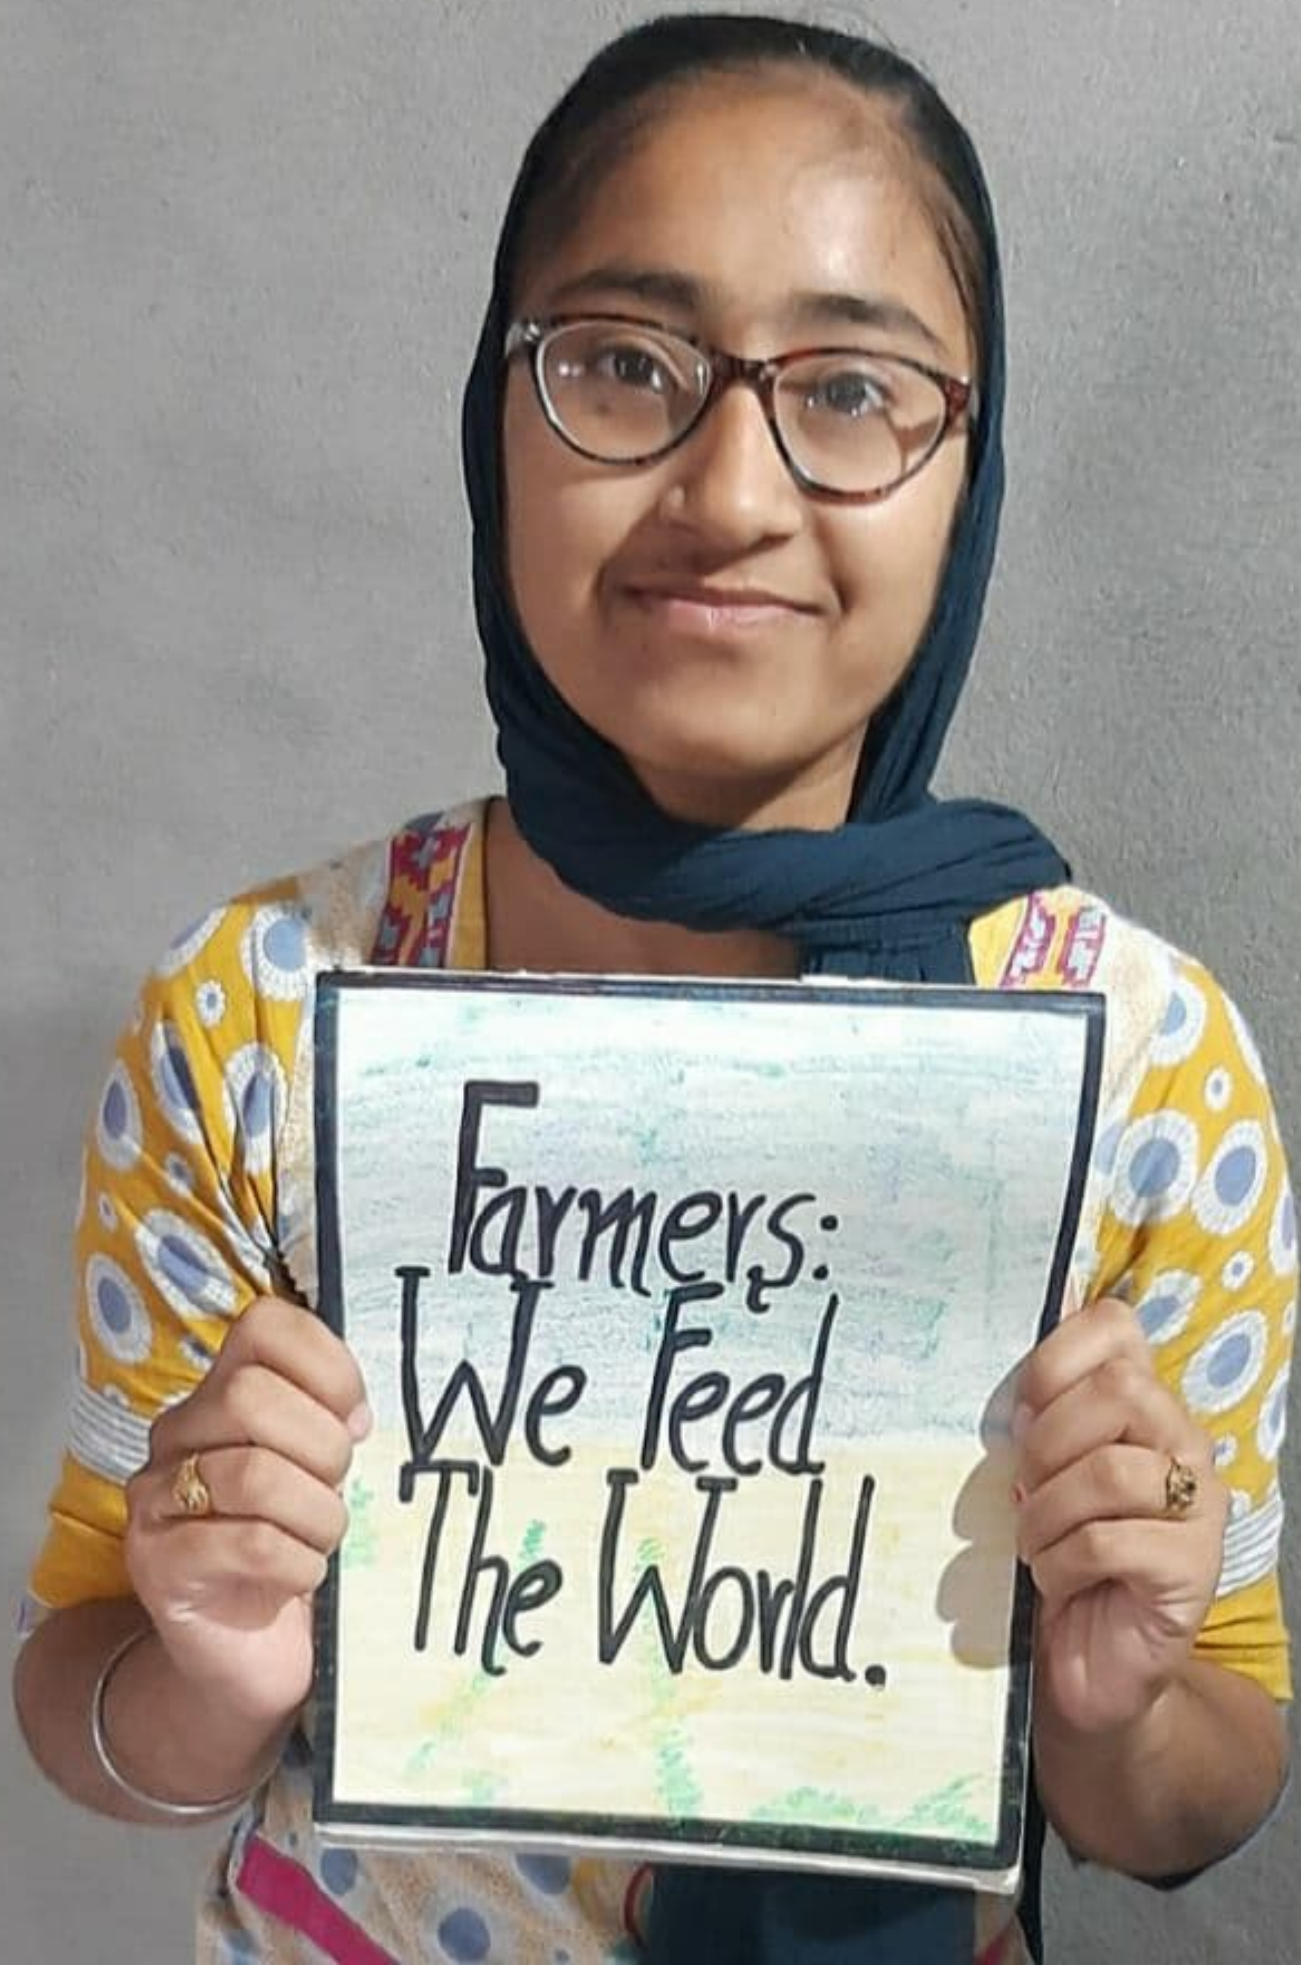 Farmers:
We Feed
The World.